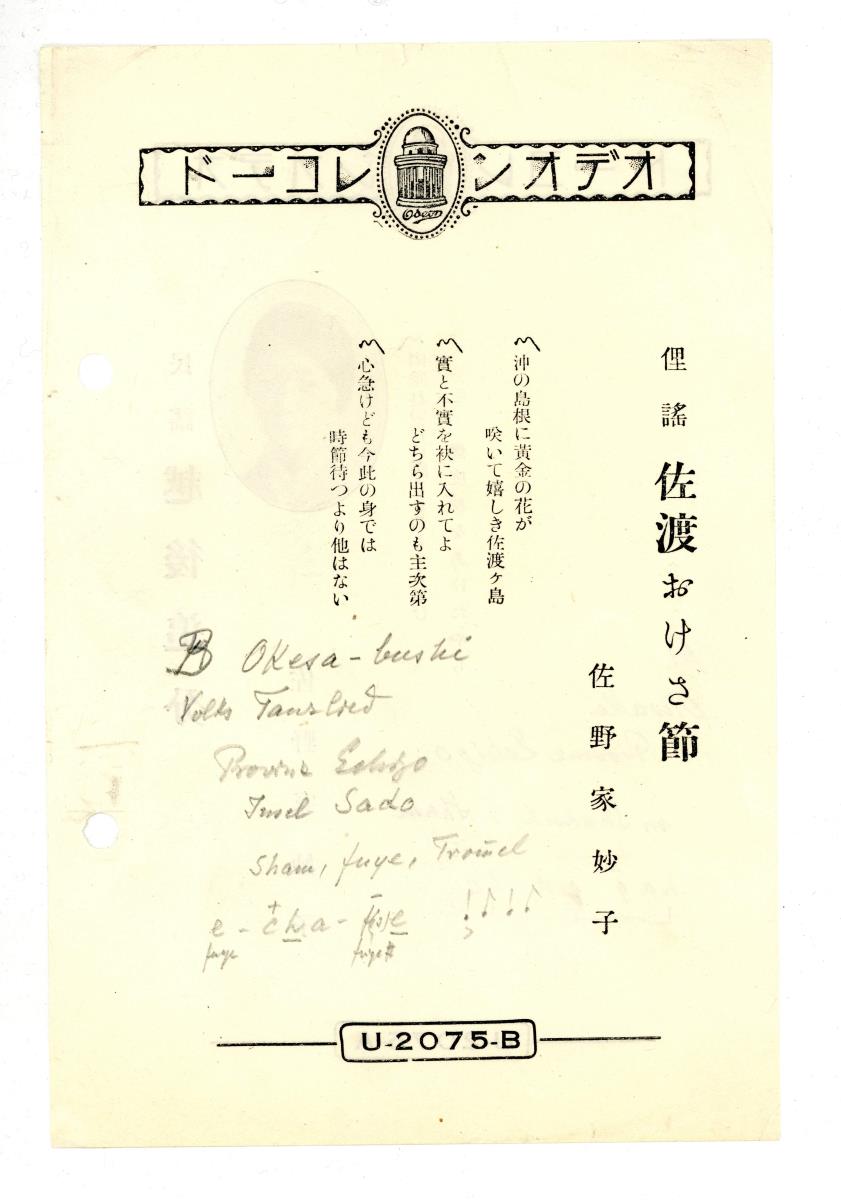 オデオンレコード
Odeon
俚謠 佐渡おけさ節
佐野家妙子
〽沖の島根に黃金の花が
咲いて嬉しき佐渡ヶ島
〽實と不實を袂に入れてよ
どちら出すのも主次第
〽心急けども今此の身では
時節待つより他はない
B Okesa-bushi
Volks Tanzlied
Provinz Echigo
Insel Sado
Sham, fuye, Trom̄el
e - c h a - e
fuye
U-2075-B